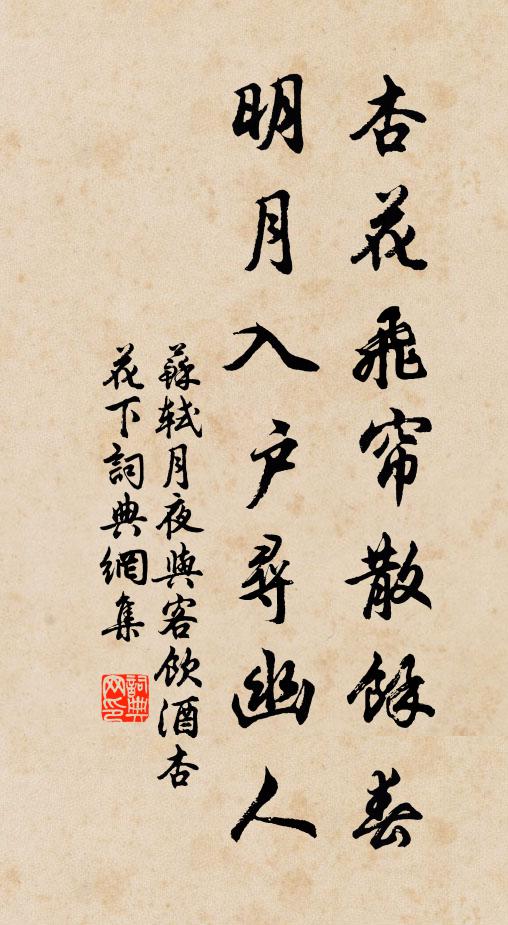 杏花飛帘散餘春
明月入户尋幽人
蘇軾月夜與客飲酒杏
花下詞典網集
詞典
网印